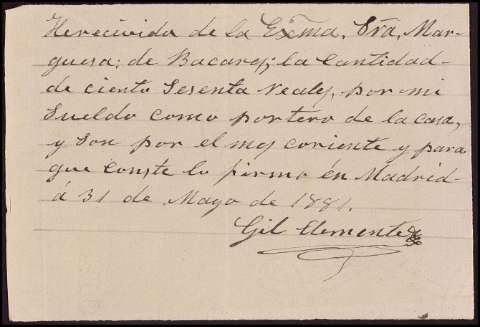 He recivida de la Exma, Sra, Mar-
quesa; de Bacares; la Cantidad-
de ciento Sesenta reales, por mi
Sueldo como portero de la casa,
y Son por el mes coriente y para
que conste lo firmo én Madrid-
á 31 de Mayo de 1881.
Gil Clemente